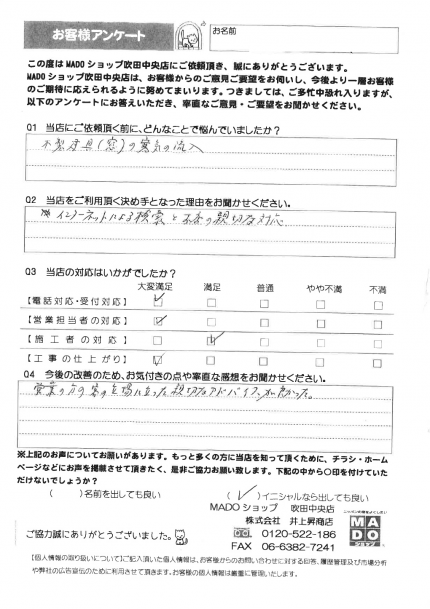 お客様アンケート
お名前
この度は MADO ショップ吹田中央店にご依頼頂き、誠にありがとうございます。
MADO ショップ吹田中央店は、お客様からのご意見ご要望をお伺いし、今後より一層お客様
のご期待に応えられるように努めてまいります。つきましては、ご多忙中恐れ入りますが、
以下のアンケートにお答えいただき、率直なご意見・ご要望をお聞かせください。
Q1 当店にご依頼頂く前に、どんなことで悩んでいましたか？
木製建具(窓)の寒気の流入
Q2 当店をご利用頂く決め手となった理由をお聞かせください。
インターネットによる検索と の親切な対応
Q3 当店の対応はいかがでしたか？
大変満足 満足 普通 やや不満 不満
【電話対応・受付対応】
【営業担当者の対応】
【施工者の対応】
【工事の仕上がり】
Q4 今後の改善のため、お気付きの点や率直な感想をお聞かせください。
営業の方の客の立場に立った親切なアドバイスが良かった。
※上記のお声についてお願いがあります。もっと多くの方に当店を知って頂くために、チラシ・ホーム
ページなどにお声を掲載させて頂きたく、是非ご協力お願い致します。下記の中から〇印を付けていた
だけないでしょうか？
( )名前を出しても良い (✓)イニシャルなら出しても良い
MADOショップ 吹田中央店
株式会社 井上昇商店
ご協力誠にありがとうございました。
0120-522-186
FAX 06-6382-7241
MADO
ショップ
【個人情報の取り扱いについて】ご記入頂いた個人情報は、お客様からのお問い合わせに対する回答、履歴管理及び市場分析
や弊社の広告宣伝のために利用させて頂きます。お客様の個人情報は厳重に管理いたします。